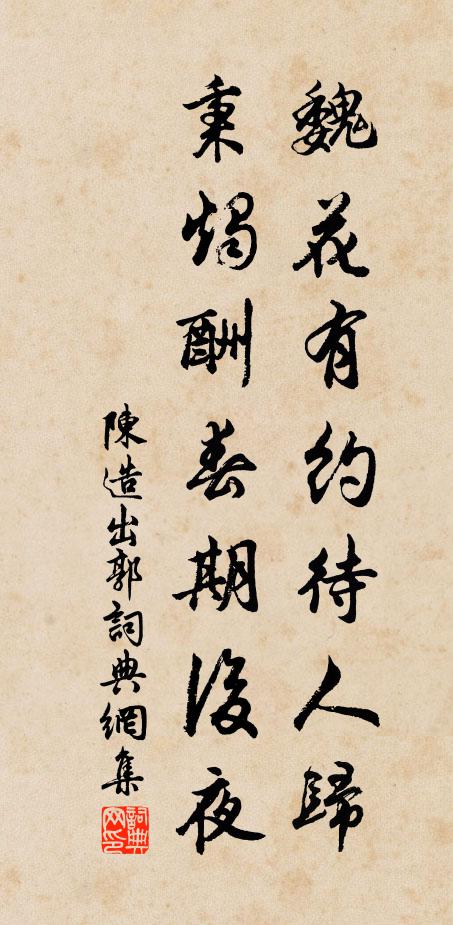 魏花有約待人歸
秉燭酬春期後夜
陳造出郭詞典網集
詞典網印